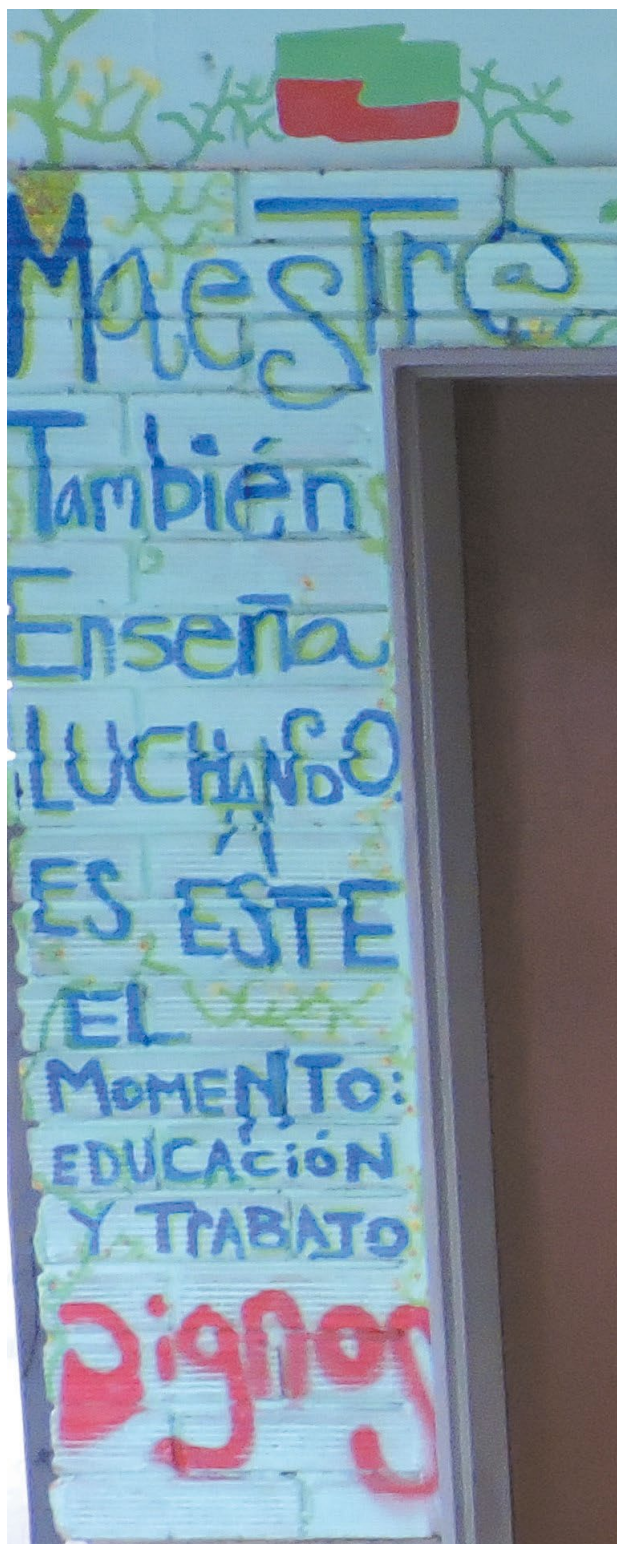 MaesTr@
También
Enseña
LUCHANDO
ES ESTE
EL
MOMENTO:
EDUCACióN
Y TrABAJO
Dignos